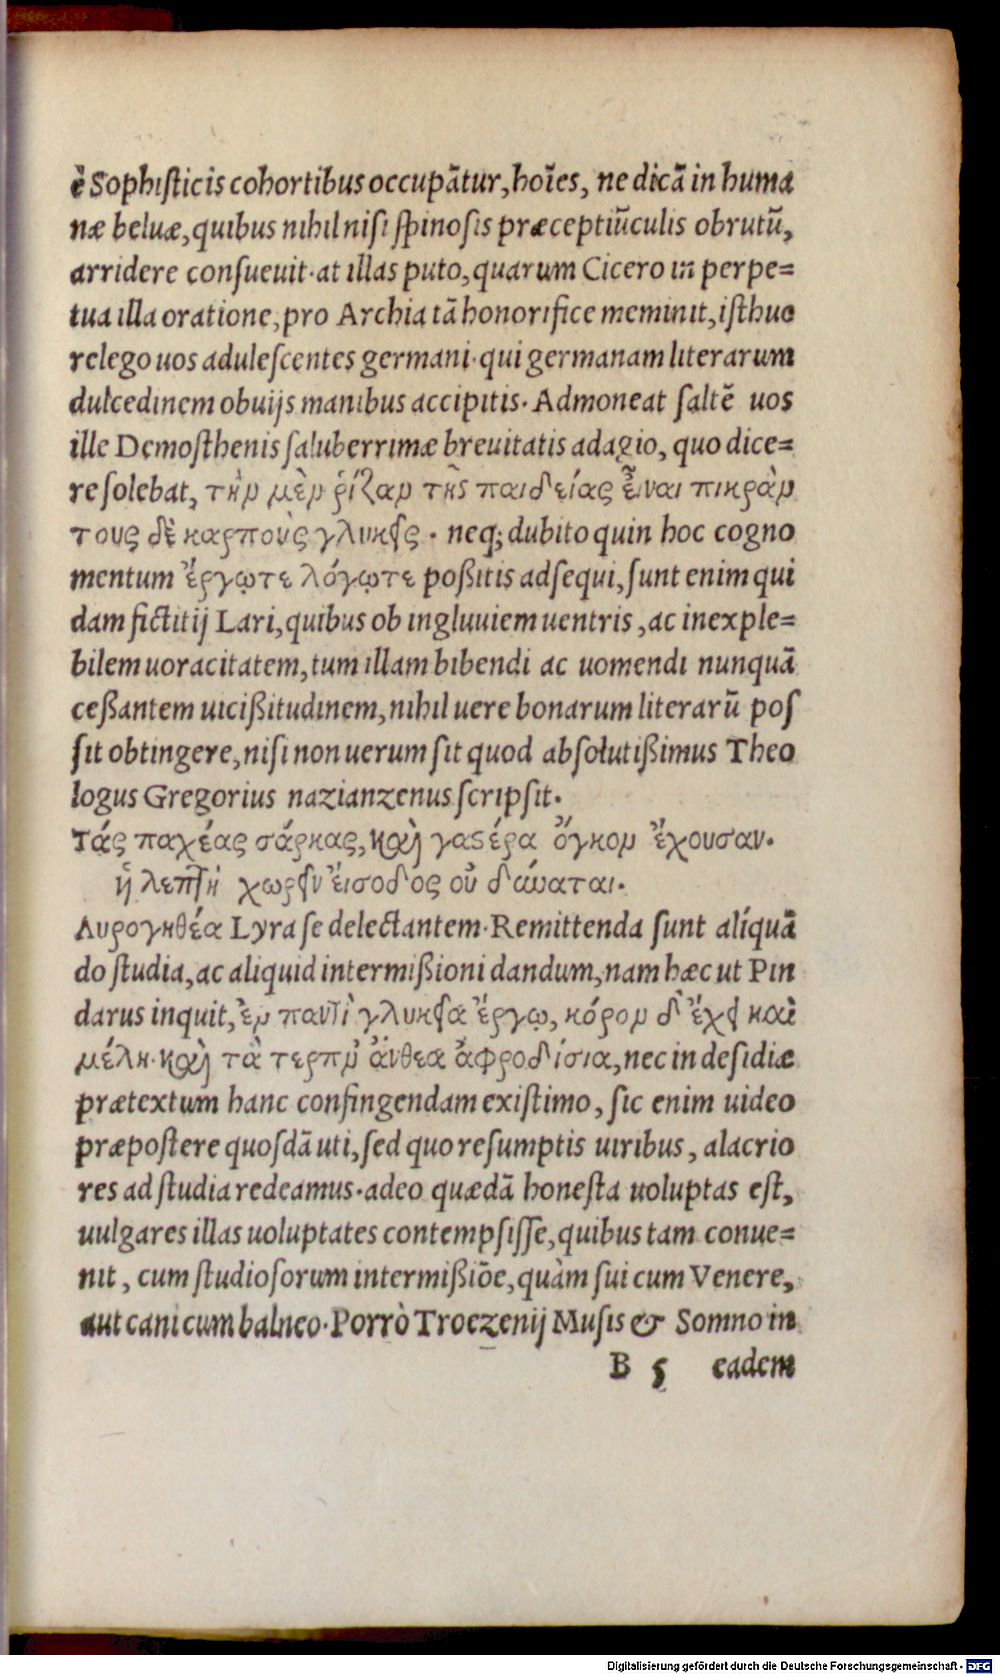 è Sophisticis cohortibus occupãtur, hoĩes, ne dicã in huma
næ beluæ, quibus nihil nisi spinosis præceptiũculis obrutũ,
arridere consueuit· at illas puto, quarum Cicero in perpe=
tua illa oratione, pro Archia tã honorifice meminit, isthuc
relego uos adulescentes germani· qui germanam literarum
dulcedinem obuijs manibus accipitis· Admoneat saltẽ uos
ille Demosthenis saluberrimæ breuitatis adagio, quo dice=
re solebat, τὴν μὲν ῥίζαν τῆς παιδείας εἶναι πικρὰν
τους δὲ καρποὺς γλυκεῖς· neq; dubito quin hoc cogno
mentum ἔργῳτε λόγῳτε poßitis adsequi, sunt enim qui
dam fictitij Lari, quibus ob ingluuiem uentris, ac inexple=
bilem uoracitatem, tum illam bibendi ac uomendi nunquã
ceßantem uicißitudinem, nihil uere bonarum literarũ pos
sit obtingere, nisi non uerum sit quod absolutißimus Theo
logus Gregorius nazianzenus scripsit·
Τάς παχέας σάρκας, καὶ γαστέρα ὄγκον ἔχουσαν·
ἡ λεπτὴ χωρεῖν εἴσοδός οὐ δύναται·
Λυρογηθέα Lyra se delectantem· Remittenda sunt aliquã
do studia, ac aliquid intermißioni dandum, nam hæc ut Pin
darus inquit, ἐν παντὶ γλυκεῖα ἔργῳ, κόρον δ' ἔχει καὶ
μέλη· καὶ τὰ τερπν' ἄνθεα ἀφροδίσια, nec in desidiæ
prætextum hanc confingendam existimo, sic enim uideo
præpostere quosdã uti, sed quo resumptis uiribus, alacrio
res ad studia redeamus· adeo quædã honesta uoluptas est,
uulgares illas uoluptates contempsisse, quibus tam conue=
nit, cum studiosorum intermißiõe, quàm sui cum Venere,
aut cani cum balneo· Porrò Troezenij Musis & Somno in
B 5 eadem
Digitalisierung gefördert durch die Deutsche Forschungsgemeinschaft · DFG